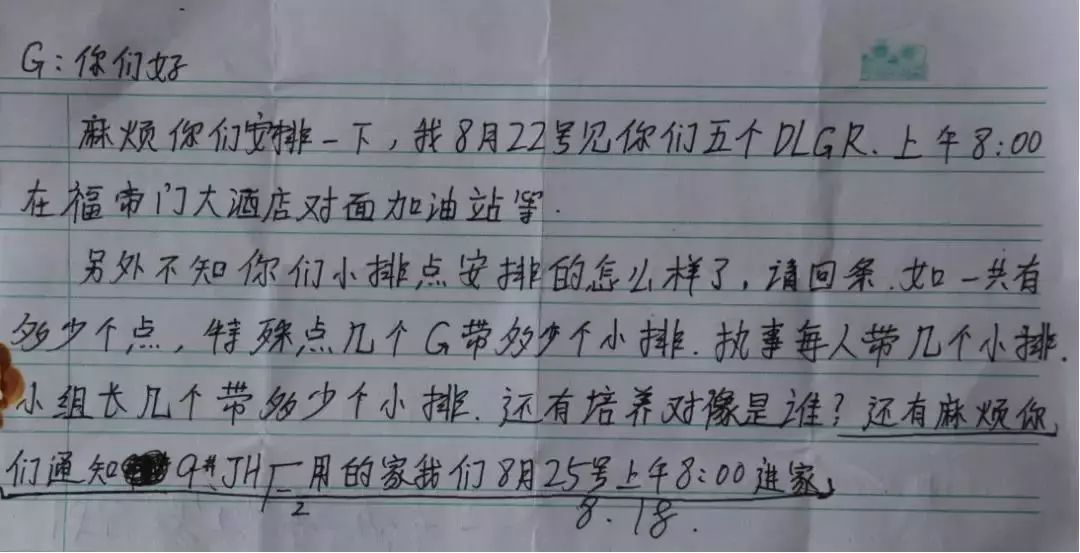 G:你们好
麻烦你们安排一下,我8月22号见你们五个DLGR.上午8:00
在福帝门大酒店对面加油站等.
另外不知你们小排点安排的怎么样了,请回条.如一共有
多少个点,特殊点几个G带多少个小排.执事每人带几个小排.
小组长几个带多少个小排.还有培养对像是谁?还有麻烦你
们通知 9# JH 用的家我们8月25号上午8:00进家
2
8.18.